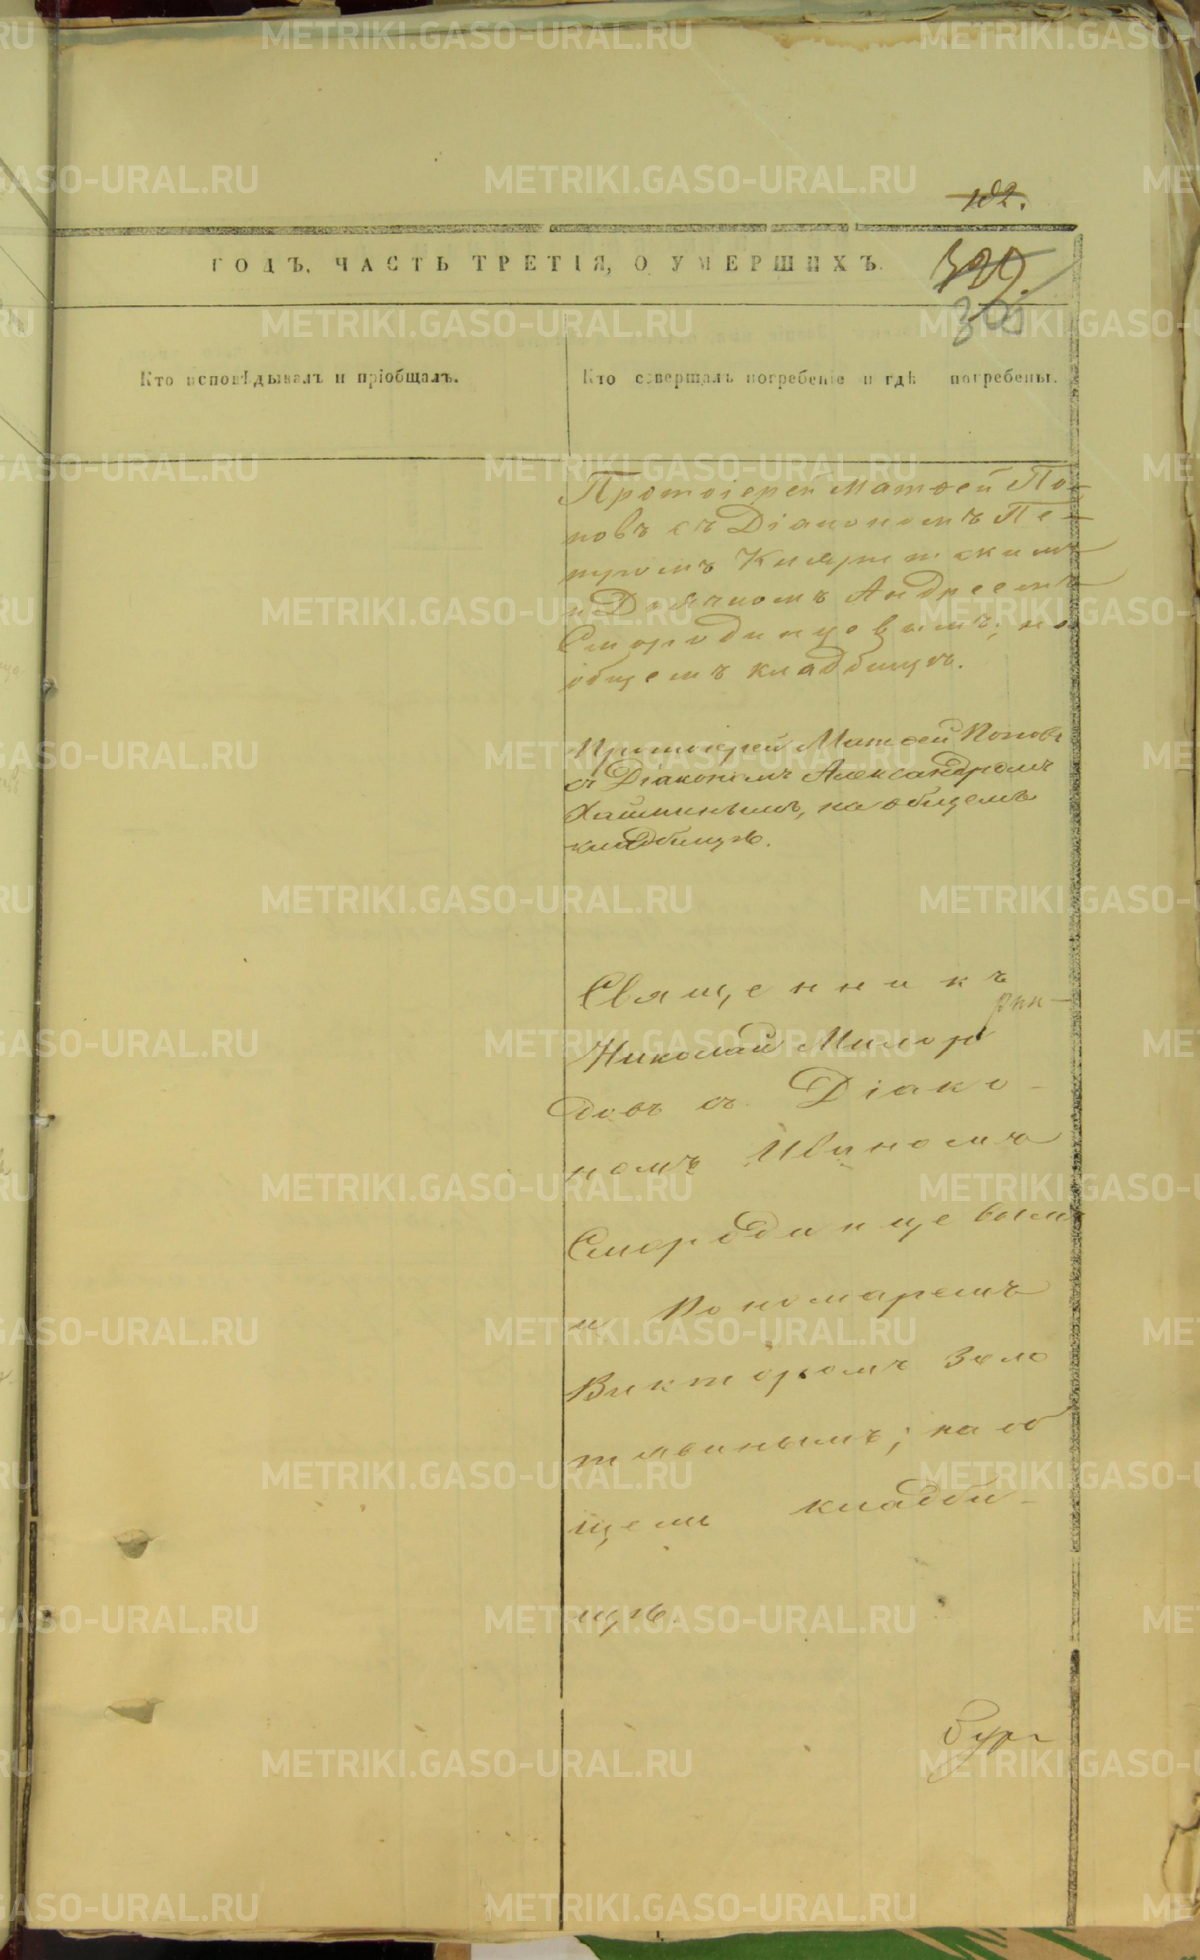 102.
ГОДЪ, ЧАСТЬ ТРЕТІЯ, О УМЕРШИХЪ.
Кто исповѣдывалъ и пріобщалъ.
Кто совершалъ погребеніе и гдѣ погребены.
Протоіерей Матѳей По-
повъ съ Діакономъ Пе-
тромъ
и Дьячкомъ Андреемъ
Смородинцовымъ; на
общемъ кладбищѣ.
Протоіерей Матѳей Поповъ
съ Діакономъ Александромъ
на общемъ
кладбищѣ.
Священникъ
Николай
довъ съ Діако-
номъ Иваномъ
Смородинцевымъ
и Пономаремъ
Викторомъ Золо
тавинымъ; на об
щемъ кладби-
щѣ.
METRIKI.GASO-URAL.RU